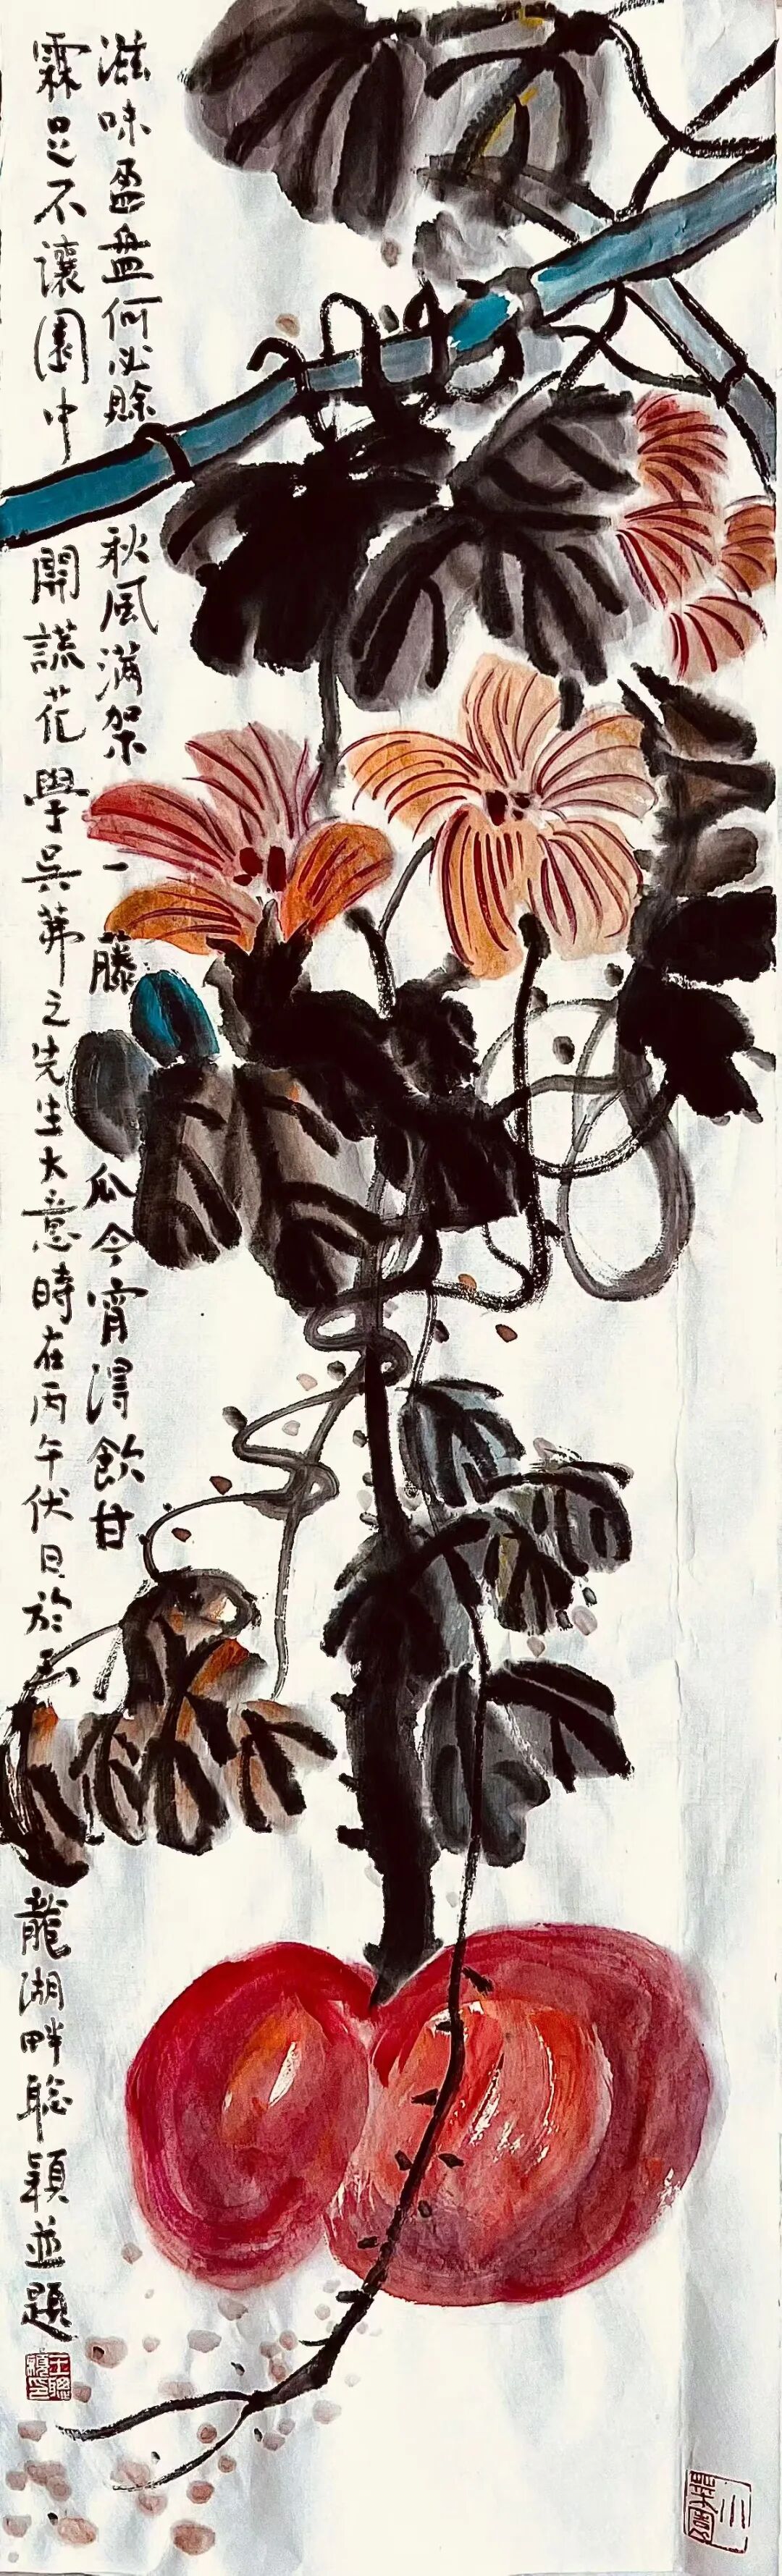 滋味盈盘何必賒秋風滿架一藤瓜今宵得飲甘
霖足不讓園中開謊花學吴茀之先生大意時在丙午伏日於玉龍湖畔聡穎並題
王聰穎印